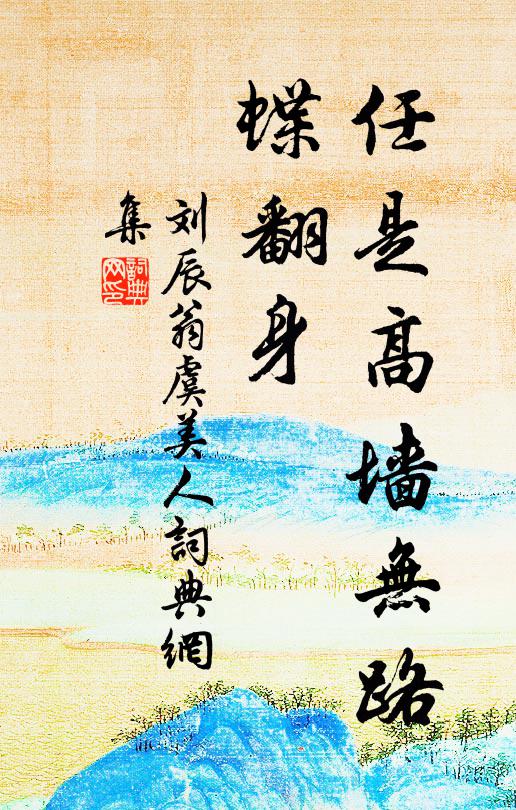 任是高墙無路
蝶翻身
刘辰翁虞美人詞典網
集
詞典
网印